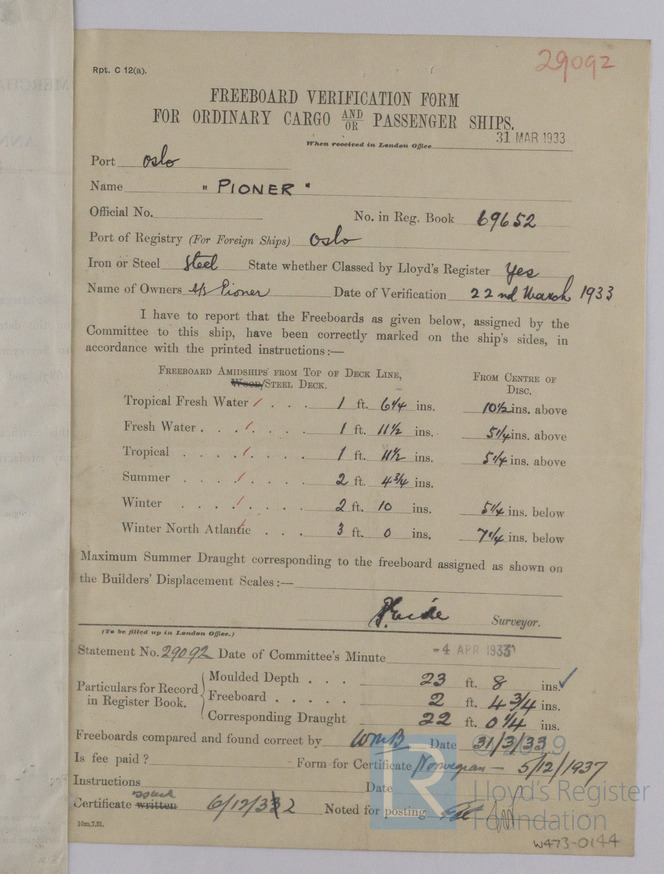 Rpt. C 12(a).
29092
FREEBOARD VERIFICATION FORM
FOR ORDINARY CARGO AND/OR PASSENGER SHIPS.
31 MAR 1933
When received in London Office
Port Oslo
Name "PIONER"
Official No.
No. in Reg. Book 69652
Port of Registry (For Foreign Ships) Oslo
Iron or Steel Steel State whether Classed by Lloyd's Register Yes
Name of Owners A/S Pioner Date of Verification 22nd March 1933
I have to report that the Freeboards as given below, assigned by the
Committee to this ship, have been correctly marked on the ship's sides, in
accordance with the printed instructions:—
FREEBOARD AMIDSHIPS FROM TOP OF DECK LINE,
WOOD/STEEL DECK.
FROM CENTRE OF
DISC.
Tropical Fresh Water . . . 1 ft. 6¼ ins. 10½ ins. above
Fresh Water . . . . . 1 ft. 11½ ins. 5¼ ins. above
Tropical . . . . . 1 ft. 11½ ins. 5¼ ins. above
Summer . . . . . 2 ft. 4¾ ins.
Winter . . . . . 2 ft. 10 ins. 5¼ ins. below
Winter North Atlantic . . . 3 ft. 0 ins. 7¼ ins. below
Maximum Summer Draught corresponding to the freeboard assigned as shown on
the Builders' Displacement Scales:—
Surveyor.
(To be filled up in London Office.)
Statement No. 29092 Date of Committee's Minute -4 APR 1933
Particulars for Record in Register Book.
Moulded Depth . . . 23 ft. 8 ins.
Freeboard . . . . . 2 ft. 4 3/4 ins.
Corresponding Draught 22 ft. 0 1/4 ins.
Freeboards compared and found correct by WMB Date 31/3/33
Is fee paid? Form for Certificate Norwegian — 5/12/1937
Instructions Date
issued
Certificate written 6/12/32 Noted for posting
10m,7,31.
© 2019
Lloyd's Register
Foundation
W473-0144